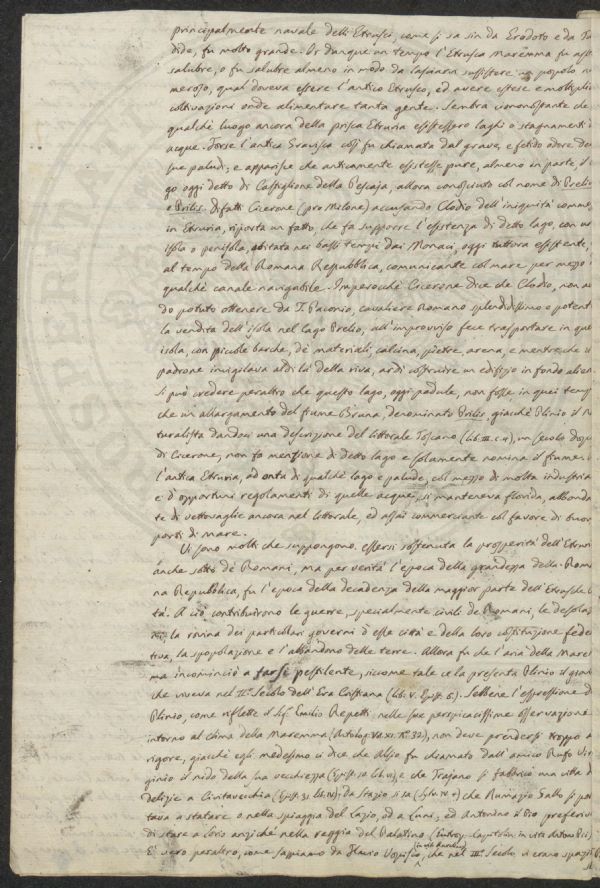 principalmente navale delli Etrusci, come si sa sin da Erodoto e da Tu
dide, fu molto grande. Vi dunque un tempo l'Etrusca Maremma fu assa
salubre, o fu salubre almeno in modo da lasciarvi sussistere un popolo nu
meroso, qual doveva essere l'antico Etrusco, ed avere estese e moltiplic
coltivazioni onde alimentare tanta gente. Sembra nonostante che
qualche luogo ancora della prisca Etruria esistessero laghi o stagnamenti
acque. Forse l'antica Gravisca così fu chiamata dal grave, e fetido odore de
sue paludi; e apparisce che anticamente esistesse pure, almeno in parte, il
go oggi detto di Castiglione della Pescaja, allora conosciuto col nome di Prelio
o Prilis. Difatti Cicerone (pro Milone) accusando Clodio dell'iniquità comme
in Etruria, riporta un fatto, che fa supporre l'esistenza di detto lago, con un
isola o penisola, abitata nei bassi tempi dai Monaci, oggi tuttora esistente,
al tempo della Romana Repubblica, comunicante col mare per mezzo
qualche canale navigabile. Imperocchè Cicerone dice che Clodio, non av
do potuto ottenere da T. Paconio, cavaliere Romano splendidissimo e potent
la vendita dell'isola nel lago Prelio, all'improvviso fece trasportare in que
isola, con piccole barche, de materiali, calcina, pietre, arena, e mentre che il
padrone invigilava al di là della riva, ardì costruire un edifizio in fondo alien
Si può credere peraltro che questo lago, oggi padule, non fosse in quei temp
che un allargamento del fiume Bruna, denominato Prilis, giacchè Plinio il N
turalista dandoci una descrizione del littorale Toscano (Lib. III. c. 4), un secolo dop
di Cicerone, non fa menzione di detto lago e solamente nomina il fiume.
l'antica Etruria, ad onta di qualche lago e palude, col mezzo di molta industria
e d'opportuni regolamenti di quelle acque, si manteneva florida, abbonda
te di vettovaglie ancora nel littorale, ed assai commerciante col favore di buon
porti di mare.
Vi sono molti che suppongono essersi sostenuta la prosperità dell'Etruri
anche sotto de Romani, ma per verità l'epoca della grandezza della Roma
na Repubblica, fu l'epoca della decadenza della maggior parte dell'Etrusche C
tà. A ciò contribuirono le guerre, specialmente civili de Romani, le desola
ni, la rovina dei particolari governi d'esse città e della loro costituzione fede
tiva, la spopolazione e l'abbandono delle terre. Allora fu che l'aria della Mare
ma incominciò a farsi pestilente, siccome tale ce la presenta Plinio il giov
che viveva nel II.º Secolo dell'Era Cristiana (Lib. V. Epist. 6.). Sebbene l'espressione d
Plinio, come riflette il Sig.r Emilio Repetti nelle sue perspicacissime osservazione
intorno al clima della Maremma (Antolog. Vol. XI. N.º 32), non deve prendersi troppo a
rigore, giacchè egli medesimo ci dice che Alsio fu chiamato dall'amico Rufo Vir
ginio il nido della sua vecchiezza (Epist. 10 lib. VI), e che Trajano si fabbricò una villa d
delizie a Civitavecchia (Epist. 31 lib. IV); da Stazio si sa (Sylv. IV 4) che Rutilio Gallo si por
tava a statare o nella spiaggia del Lazio, od a Luni, ed Antonino il Pio preferiv
di stare a Lorio anzichè nella reggia del Palatino (Eutrop. Capitolin. in vita Anton. Pii).
E' vero peraltro, come sappiamo da Flavio Vopisco (in vit. Aurelian.), che nel III.º Secolo vi erano spazj